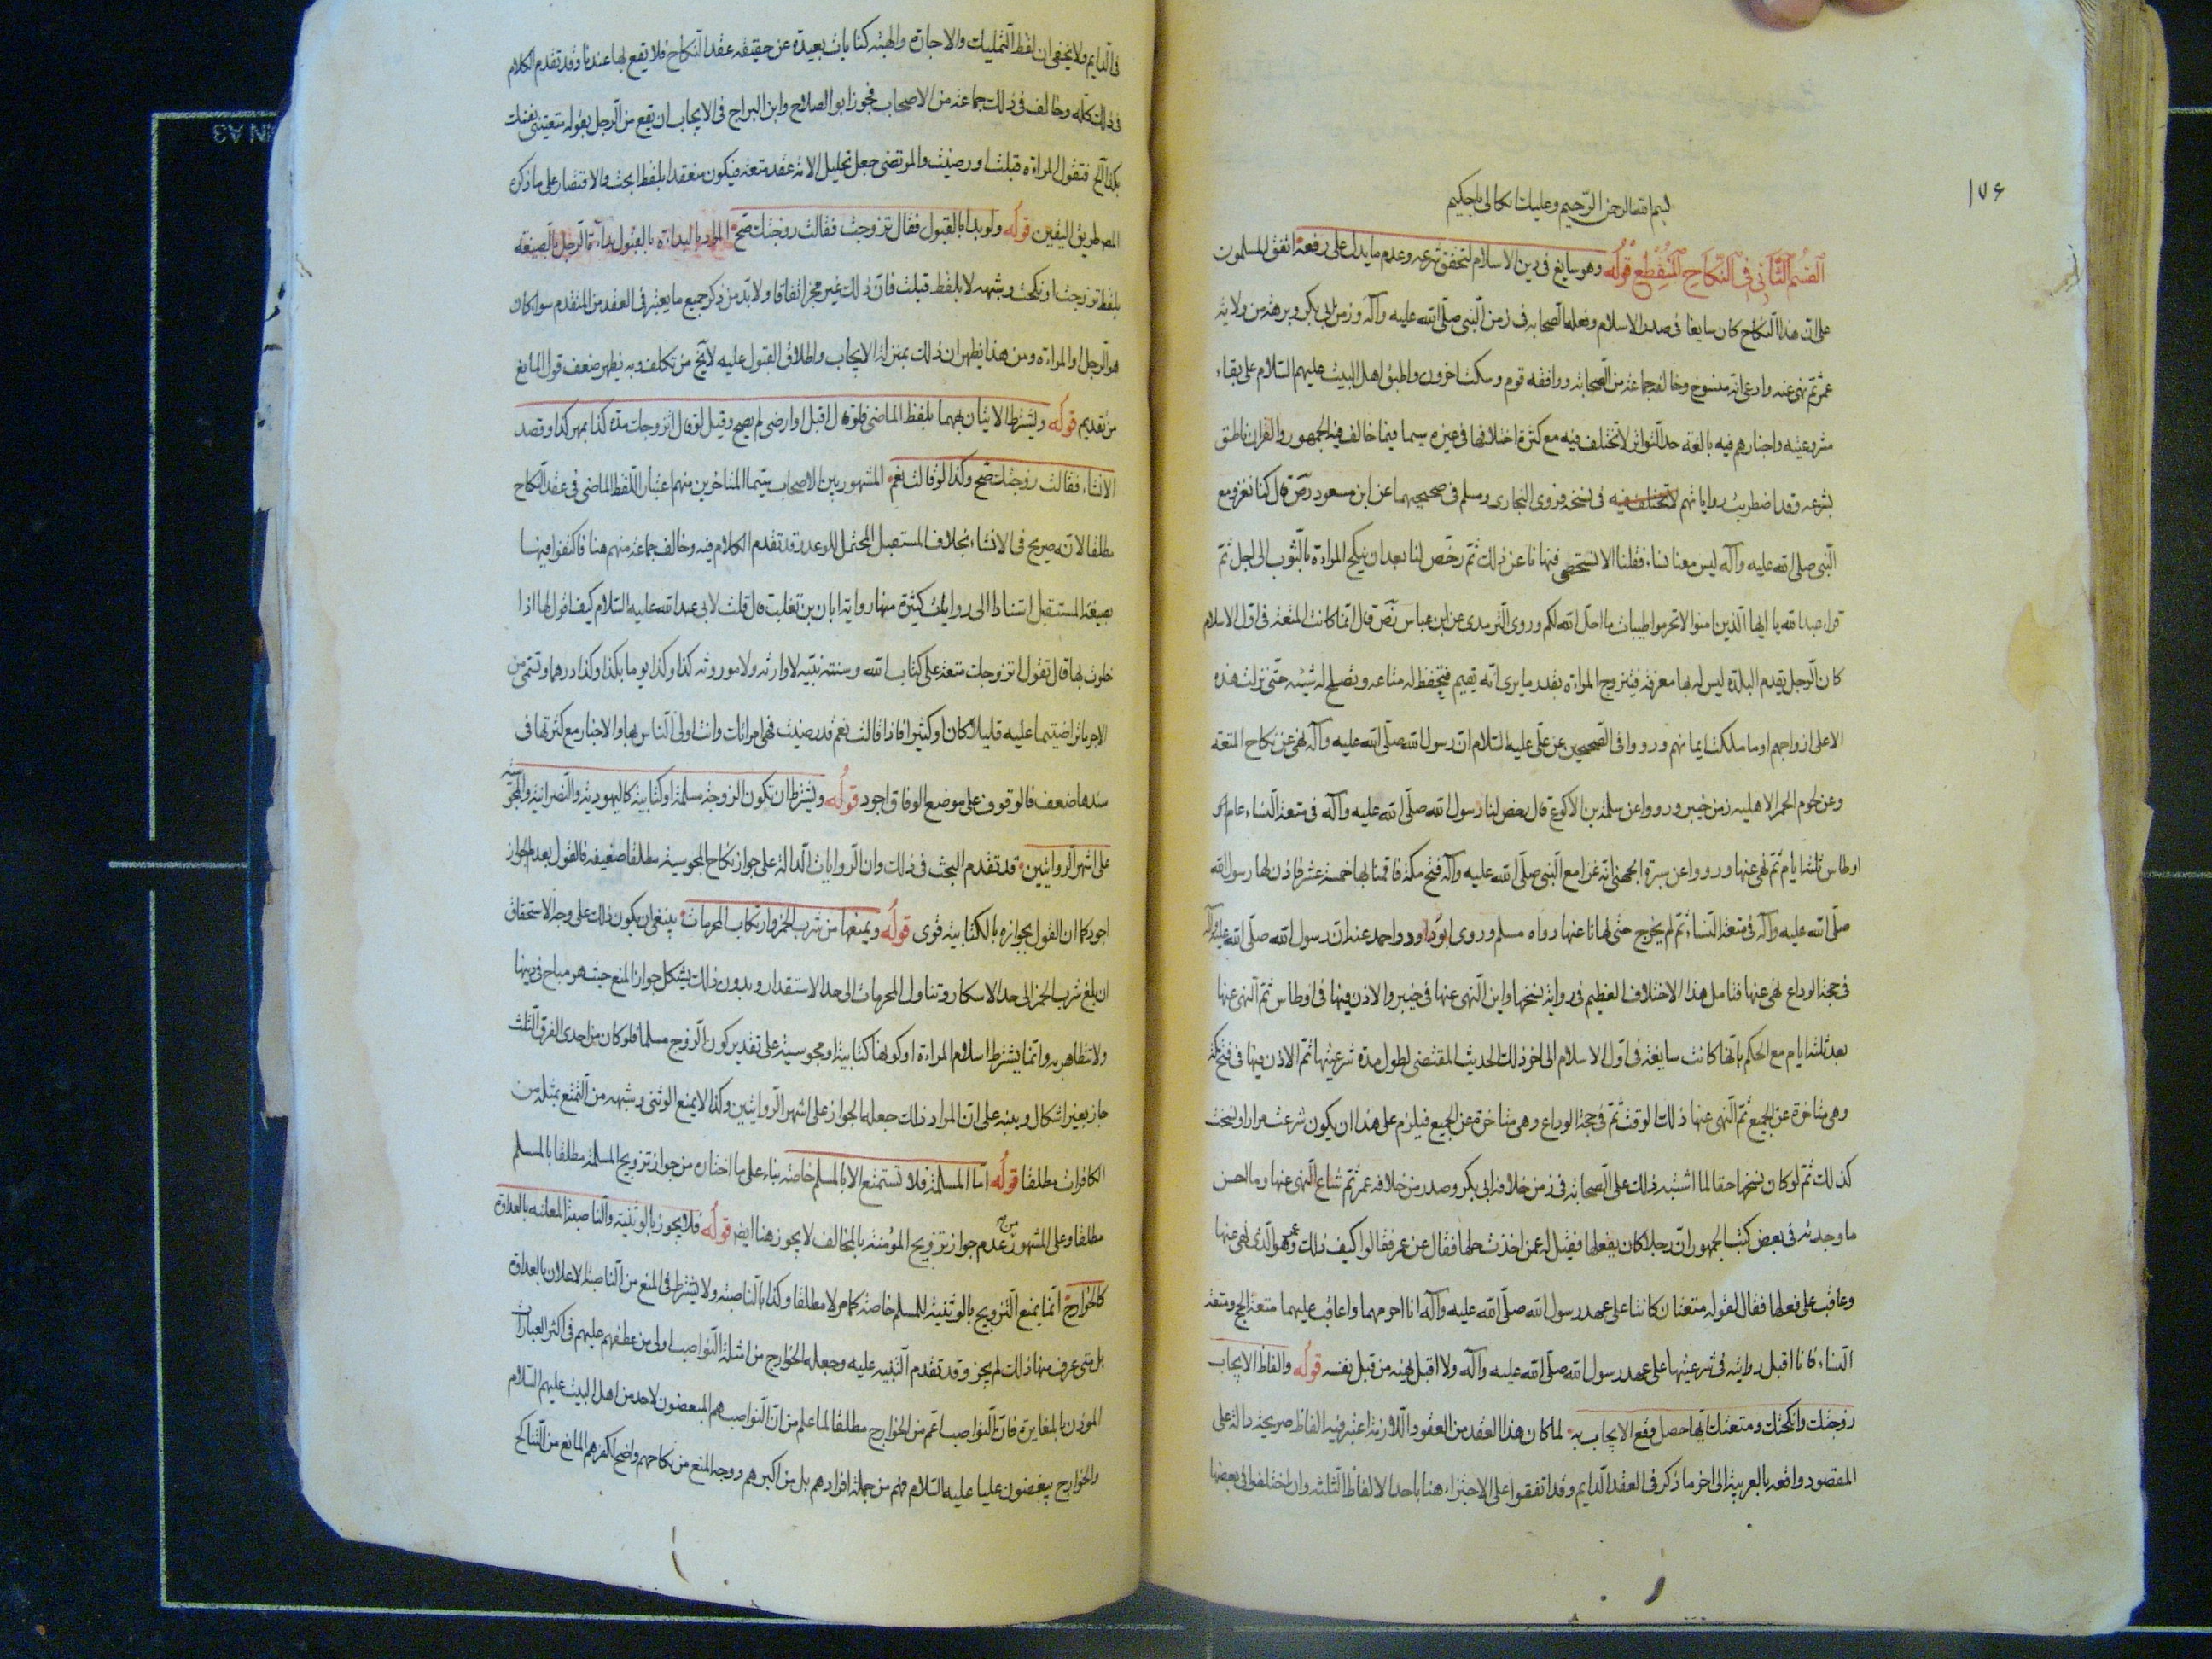 ١٧۶
بسم الله الرحمن الرحيم وعليك اتكالى يا حكيم
القسم الثانى فى النكاح المنقطع قوله وهو سايغ فى دين الاسلام لتحقق شرعه وعدم ما يدل على رفعه اتفق المسلمون
على ان هذا النكاح كان سايغا فى صدر الاسلام وفعله الصحابه فى زمن النبى صلى الله عليه وآله وزمن ابى بكر وبرهة من ولاية
عمر ثم نهى عنه وادعى انه منسوخ وخالفه جماعة من الصحابة ووافقه قوم وسكت اخرون واطبق اهل البيت عليهم السلام على بقاء
مشروعيته واخبارهم فيه بالغة حد التواتر لا تختلف فيه مع كثرة اختلافها فى غيره سيما فيما خالف فيه الجمهور والقران ناطق
بشرعه وقد اضطربت رواياتهم فى نسخه فروى البخارى ومسلم فى صحيحيهما عن ابن مسعود رض قال كنا نغزو مع
النبى صلى الله عليه وآله ليس معنا نساء فقلنا الا نستخصى فنهانا عن ذلك ثم رخص لنا بعد ان ينكح المراة بالثوب الى اجل ثم
قراء عبد الله يا ايها الذين امنوا لا تحرموا طيبات ما احل الله لكم وروى الترمدى عن ابن عباس رض قال انما كانت المتعة فى اول الاسلام
كان الرجل يقدم البلدة ليس له بها معرفة فيتزوج المراة بقدر ما يرى انه يقيم فتحفظ له متاعه وتصلح له شيئه حتى نزلت هذه
الا على ازواجهم او ما ملكت ايمانهم ورووا فى الصحيحين عن على عليه السلام ان رسول الله صلى الله عليه وآله نهى عن نكاح المتعة
وعن لحوم الحمر الاهلية زمن خيبر ورووا عن سلمة بن الاكوع قال رخص لنا رسول الله صلى الله عليه وآله فى متعة النساء عام
اوطاس ثلثة ايام ثم نهى عنها ورووا عن سبرة الجهنى انه غزا مع النبى صلى الله عليه وآله فتح مكة فاقمنا بها خمسة عشر فاذن لها رسول الله
صلى الله عليه وآله فى متعة النساء ثم لم يخرج حتى نهانا عنها رواه مسلم وروى ابو داود واحمد عنه ان رسول الله صلى الله عليه وآله
فى حجة الوداع نهى عنها فتامل هذا الاختلاف العظيم فى رواية نسخها واين النهى عنها فى خيبر والاذن فيها فى اوطاس ثم النهى عنها
بعد ثلثة ايام مع الحكم بانها كانت سايغة فى اول الاسلام الى اخر ذلك الحديث المقتضى لطول مدة شرعيتها ثم الاذن فيها فى فتح مكة
وهى متاخرة عن الجميع ثم النهى عنها ذلك الوقت ثم فى حجة الوداع وهى متاخرة عن الجميع فيلزم على هذا ان يكون شرعت مرارا ونسخت
كذلك ثم لو كان نسخها حقا لما اشتبه ذلك على الصحابة فى زمن خلافة ابى بكر وصدر من خلافة عمر ثم شاع النهى عنها وما احسن
ما وجدته فى بعض كتب الجمهور ان رجلا كان يفعلها فقيل له عمن اخذت حلها فقال عن عمر فقالوا كيف ذلك وعمر هو الذى نهى عنها
وعاقب على فعلها فقال لقوله متعتان كانتا على عهد رسول الله صلى الله عليه وآله انا احرمهما واعاقب عليهما متعة الحج ومتعة
النساء فانا اقبل روايته فى شرعيتها على عهد رسول الله صلى الله عليه وآله ولا اقبل نهيه من قبل نفسه قوله والفاظ الايجاب
زوجتك وانكحتك ومتعتك ايها حصل وقع الايجاب به لما كان هذا العقد من العقود اللازمة اعتبر فيه الفاظ صريحة دالة على
المقصود واقعة بالعربية الى اخر ما ذكر فى العقد الدايم وقد اتفقوا على الاجتزاء هنا باحد الالفاظ الثلثة وان اختلفوا فى بعضها
فى الدايم ولا يخفى ان لفظ التمليك والاجارة والهبة كنايات بعيدة عن حقيقة عقد النكاح فلا يقع بها عندنا وقد تقدم الكلام
فى ذلك كله وخالف فى ذلك جماعة من الاصحاب فجوز ابو الصلاح وابن البراج فى الايجاب ان يقع من الرجل بقوله متعينى نفسك
بكذا الخ فتقول المراة قبلت او رضيت والمرتضى جعل تحليل الامة عقد متعة فيكون منعقدا بلفظ ابحت والاقتصار على ما ذكره
المص طريق اليقين قوله ولو بدا بالقبول فقال تزوجت فقالت زوجتك صح المراد بالبداءة بالقبول بداءة الرجل بالصيغة
بلفظ تزوجت او نكحت وشبهه لا بلفظ قبلت فان ذلك غير مجز اتفاقا ولا بد من ذكر جميع ما يعتبر فى العقد من المتقدم سواء كان
هو الرجل او المراة ومن هذا يظهر ان ذلك بمنزلة الايجاب واطلاق القبول عليه لا يخ من تكلف وبه يظهر ضعف قول المانع
من تقديم قوله ويشترط الاتيان بهما بلفظ الماضى فلو قال اقبل او ارضى لم يصح وقيل لو قال اتزوجك مدة كذا بمهر كذا وقصد
الانشاء فقالت زوجتك صح وكذا لو قالت نعم المشهور بين الاصحاب سيما المتاخرين منهم اعتبار اللفظ الماضى فى عقد النكاح
مطلقا لانه صريح فى الانشاء بخلاف المستقبل المحتمل للوعد وقد تقدم الكلام فيه وخالف جماعة منهم هنا فاكتفوا فيها
بصيغة المستقبل استنادا الى روايات كثيرة منها رواية ابان بن تغلب قال قلت لابى عبد الله عليه السلام كيف اقول لها اذا
خلوت بها قال تقول اتزوجك متعة على كتاب الله وسنة نبيه لا وارثة ولا موروثة كذا وكذا يوما بكذا وكذا درهما وتسمى من
الاجر ما تراضيتما عليه قليلا كان او كثيرا فاذا قالت نعم فقد رضيت فهى امراتك وانت اولى الناس بها والاخبار مع كثرتها فى
سندها ضعف فالوقوف على موضع الوفاق اجود قوله ويشترط ان تكون الزوجة مسلمة او كتابية كاليهودية والنصرانية والمجوسية
على اشهر الروايتين قد تقدم البحث فى ذلك وان الروايات الدالة على جواز نكاح المجوسية مطلقا ضعيفة فالقول بعدم الجواز
اجود كما ان القول بجوازه بالكتابية قوى قوله ويمنعها من شرب الخمر وارتكاب المحرمات ينبغى ان يكون ذلك على وجه الاستحقاق
ان بلغ شرب الخمر الى حد الاسكار وتناول المحرمات الى حد الاستقذار وبدون ذلك يشكل جواز المنع حيث هو مباح فى دينها
ولا تتظاهر به وانما يشترط اسلام المراة او كونها كتابية او مجوسية على تقدير كون الزوج مسلما فلو كان من احدى الفرق الثلث
جاز بغير اشكال وينبه على ان المراد ذلك جعله الجواز على اشهر الروايتين وكذا لا يمنع الوثنى وشبهه من التمتع بمثله من
الكافرات مطلقا قوله اما المسلمة فلا تستمتع الا بالمسلم خاصة بناء على ما اختاره من جواز تزويج المسلمة مطلقا بالمسلم
مطلقا وعلى المشهور من عدم جواز تزويج المؤمنة بالمخالف لا يجوز هنا ايضا قوله فلا يجوز بالوثنية والناصبة المعلنة بالعداوة
كالخوارج انما يمنع التزويج بالوثنية للمسلم خاصة كما مر لا مطلقا وكذا بالناصبة ولا يشترط فى المنع من الناصبة الاعلان بالعداوة
بل متى عرف منها ذلك لم يجز وقد تقدم التنبيه عليه وجعله الخوارج من امثلة النواصب اولى من عطفهم عليهم فى اكثر العبارات
الموذن بالمغايرة فان النواصب اعم من الخوارج مطلقا لما علم من ان النواصب هم المبغضون لاحد من اهل البيت عليهم السلام
والخوارج يبغضون عليا عليه السلام فهم من جملة افرادهم بل من اكبرهم ووجه المنع من نكاحهم واضح لكفرهم المانع من التناكح